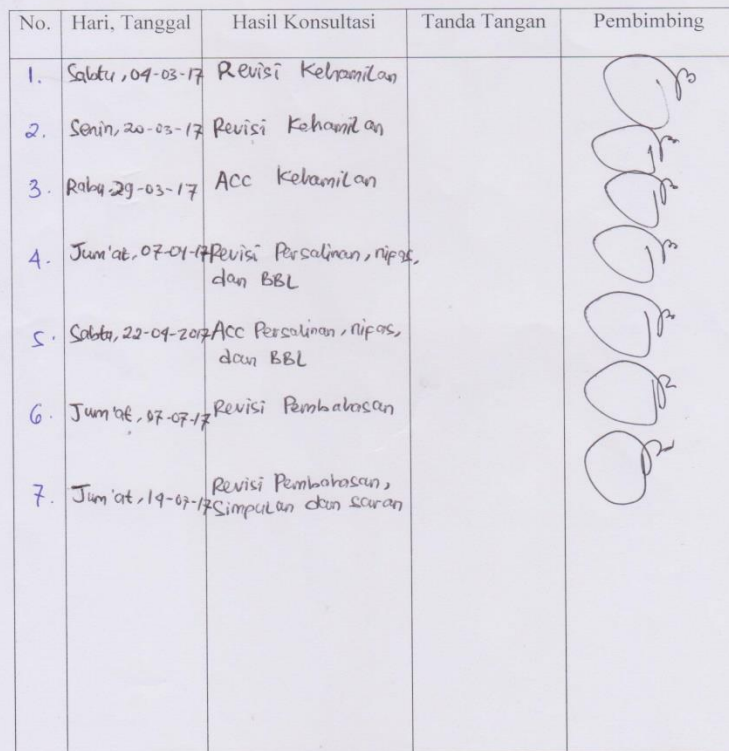 No. Hari, Tanggal Hasil Konsultasi Tanda Tangan Pembimbing
1. Sabtu, 04-03-17 Revisi Kehamilan
2. Senin, 20-03-17 Revisi Kehamilan
3. Rabu, 29-03-17 Acc Kehamilan
4. Jum'at, 07-04-17 Revisi Persalinan, nipas,
dan BBL
5. Sabtu, 22-04-2017 Acc Persalinan, nipas,
dan BBL
6. Jum'at, 07-07-17 Revisi Pembahasan
7. Jum'at, 14-07-17 Revisi Pembahasan,
Simpulan dan saran